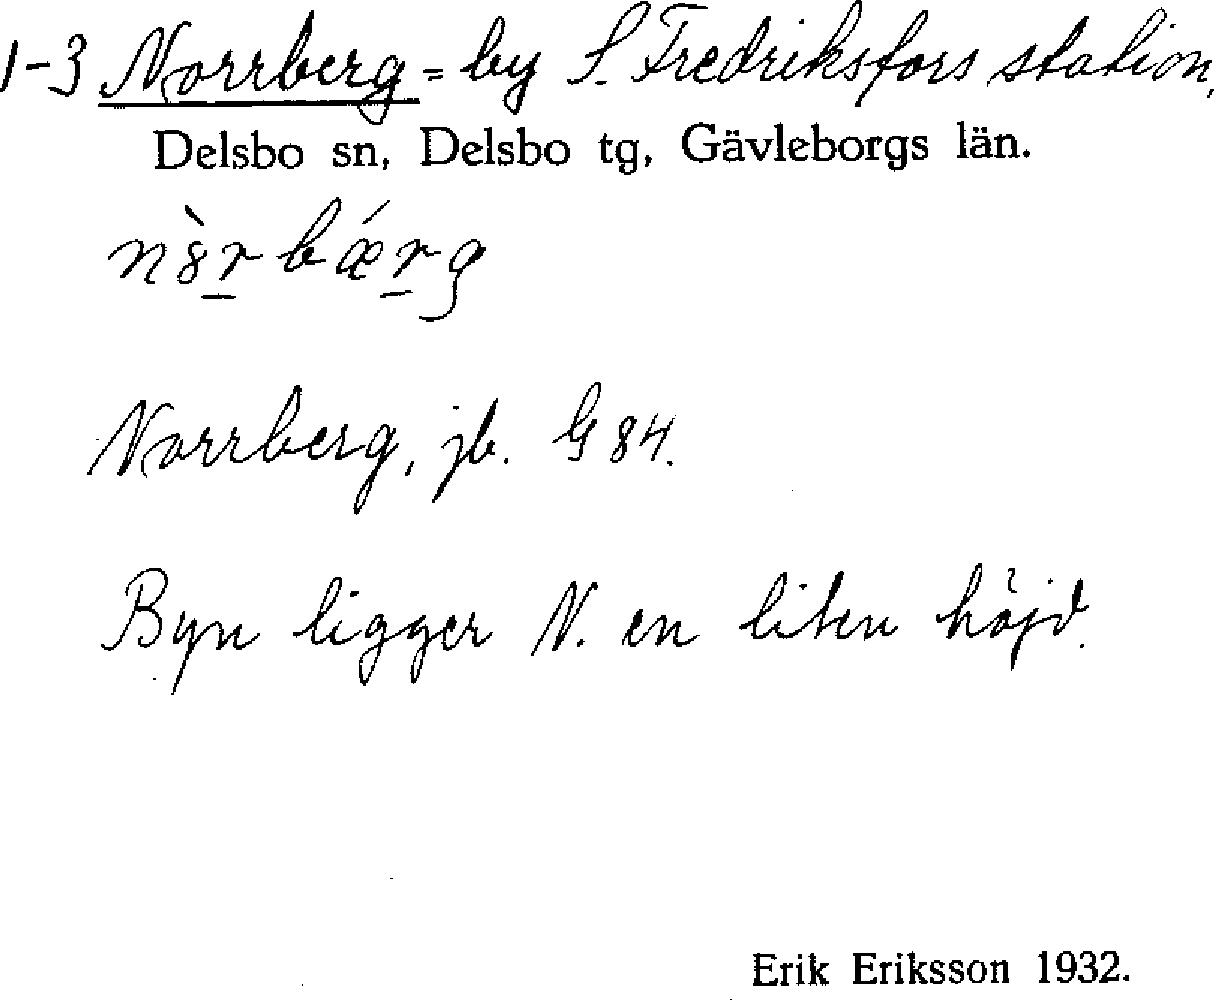 1-3 Norrberg = by S. Fredriksfors station,
Delsbo sn, Delsbo tg, Gävleborgs län.
n8̀rbǽrg
Norrberg, jb. G 84.
Byn ligger N. en liten höjd.
Erik Eriksson 1932.